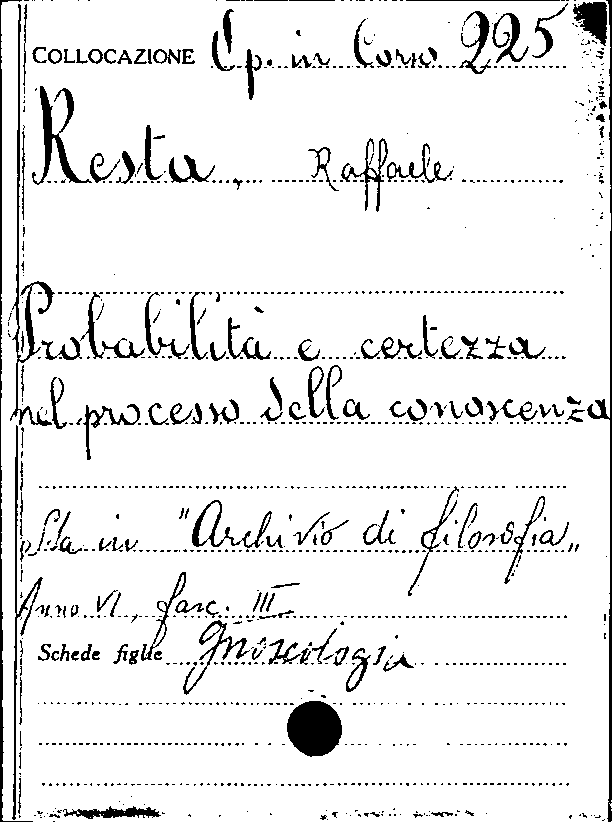 COLLOCAZIONE Op. in Corso 225
Resta, Raffaele
Probabilità e certezza
nel processo della conoscenza
Sta in "Archivio di filosofia"
Anno VI, fasc. III
Schede figlie Gnoseologia